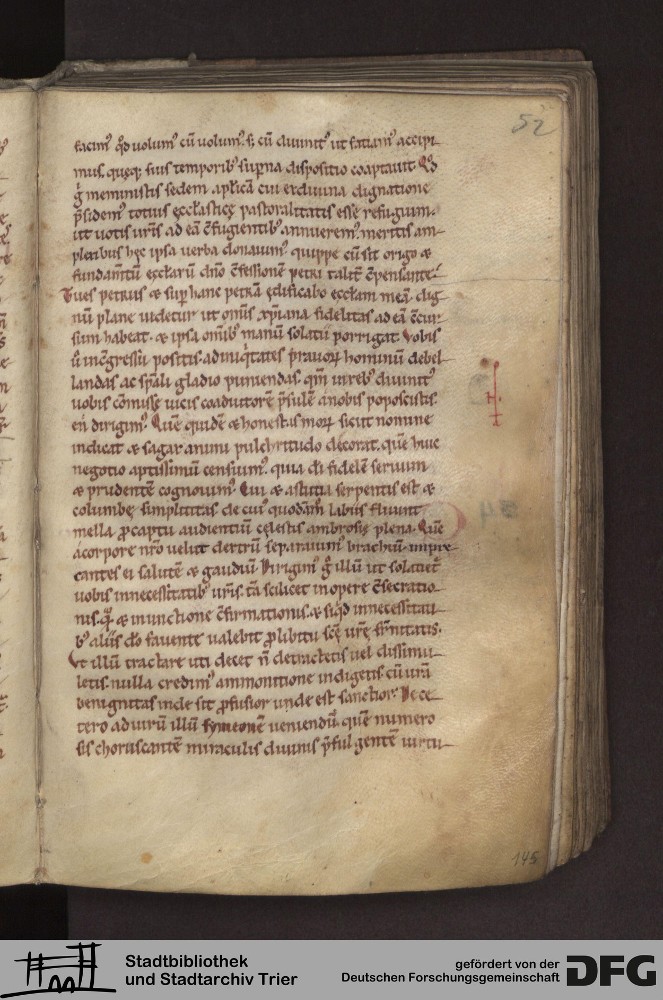 52
facim̄ qd̄ uolum᷒ cū uolum᷒. s; cū diuinit᷒ ut faciam᷒ accipi
mus. quęq; suis temporib᷒ supna dispositio coaptauit. Qd̄
g̊ meministis sedem aplicā cui ex diuina dignatione
p̄sidem᷒ totius ęccl̄asticę pastoralitatis esse refugium.
ut uotis uris ad eā c̄fugientib᷒ annuerem᷒. meritis am
plectibus hęc ipsa uerba donauim᷒ quippe cū sit origo &
fundam̄tū ęccl̄arū dn̄o c̄fessionē petri talit̄ c̄pensante.
Tu es petrus & sup hanc petrā ędificabo ęccl̄am meā. dig
nū plane uidetur ut omīs xpiana fidelitas ad eā c̄cur
sum habeat. & ipsa omib᷒ manū solatii porrigat. Vobis
ū in c̄gressu positis. ad iniq̄tates prauorū hominū debel
landas ac sp̄ali gladio puniendas. qm̄ in reb᷒ diuinit᷒
uobis cōmissis uicis coadiutorē p̄sulē a nobis poposcistis.
en dirigim᷒. Quē quidē & honestas morū sicut nomine
indicat & sagax animi pulchritudo decorat. quē huic
negotio aptissimū censuim᷒. quia di fidelē seruum
& prudentē cognouim᷒. Cui & astutia serpentis est &
columbę simplicitas de cui᷒ quodām̄ labiis fluunt
mella. p captu audientiū cęlestis ambrosię plena. Quē
a corpore nr̄o uelut dextrū separauim᷒ brachiū. impre
cantes ei salutē & gaudiū. Dirigim᷒ g̊ illū ut solaciet̄
uobis in necessitatib᷒ uris. tā scilicet in opere c̄secratio
nis. q̄ & in unctione c̄firmationis. & siq̇d in necessitati
b᷒ aliis dō fauente ualebit p libitu scę urę frnitatis.
Vt illū tractare uti decet n̄ detractetis uel dissimu
letis. nulla credim᷒ ammonitione indigetis. cū urā
benignitas inde sit p̄fusior unde est sanctior. De ce
tero ad uirū illū symeonē ueniendū. quē numero
sis choruscantē miraculis diuinis p̄ful gentē uirtu
145
Stadtbibliothek
und Stadtarchiv Trier
gefördert von der
Deutschen Forschungsgemeinschaft
DFG